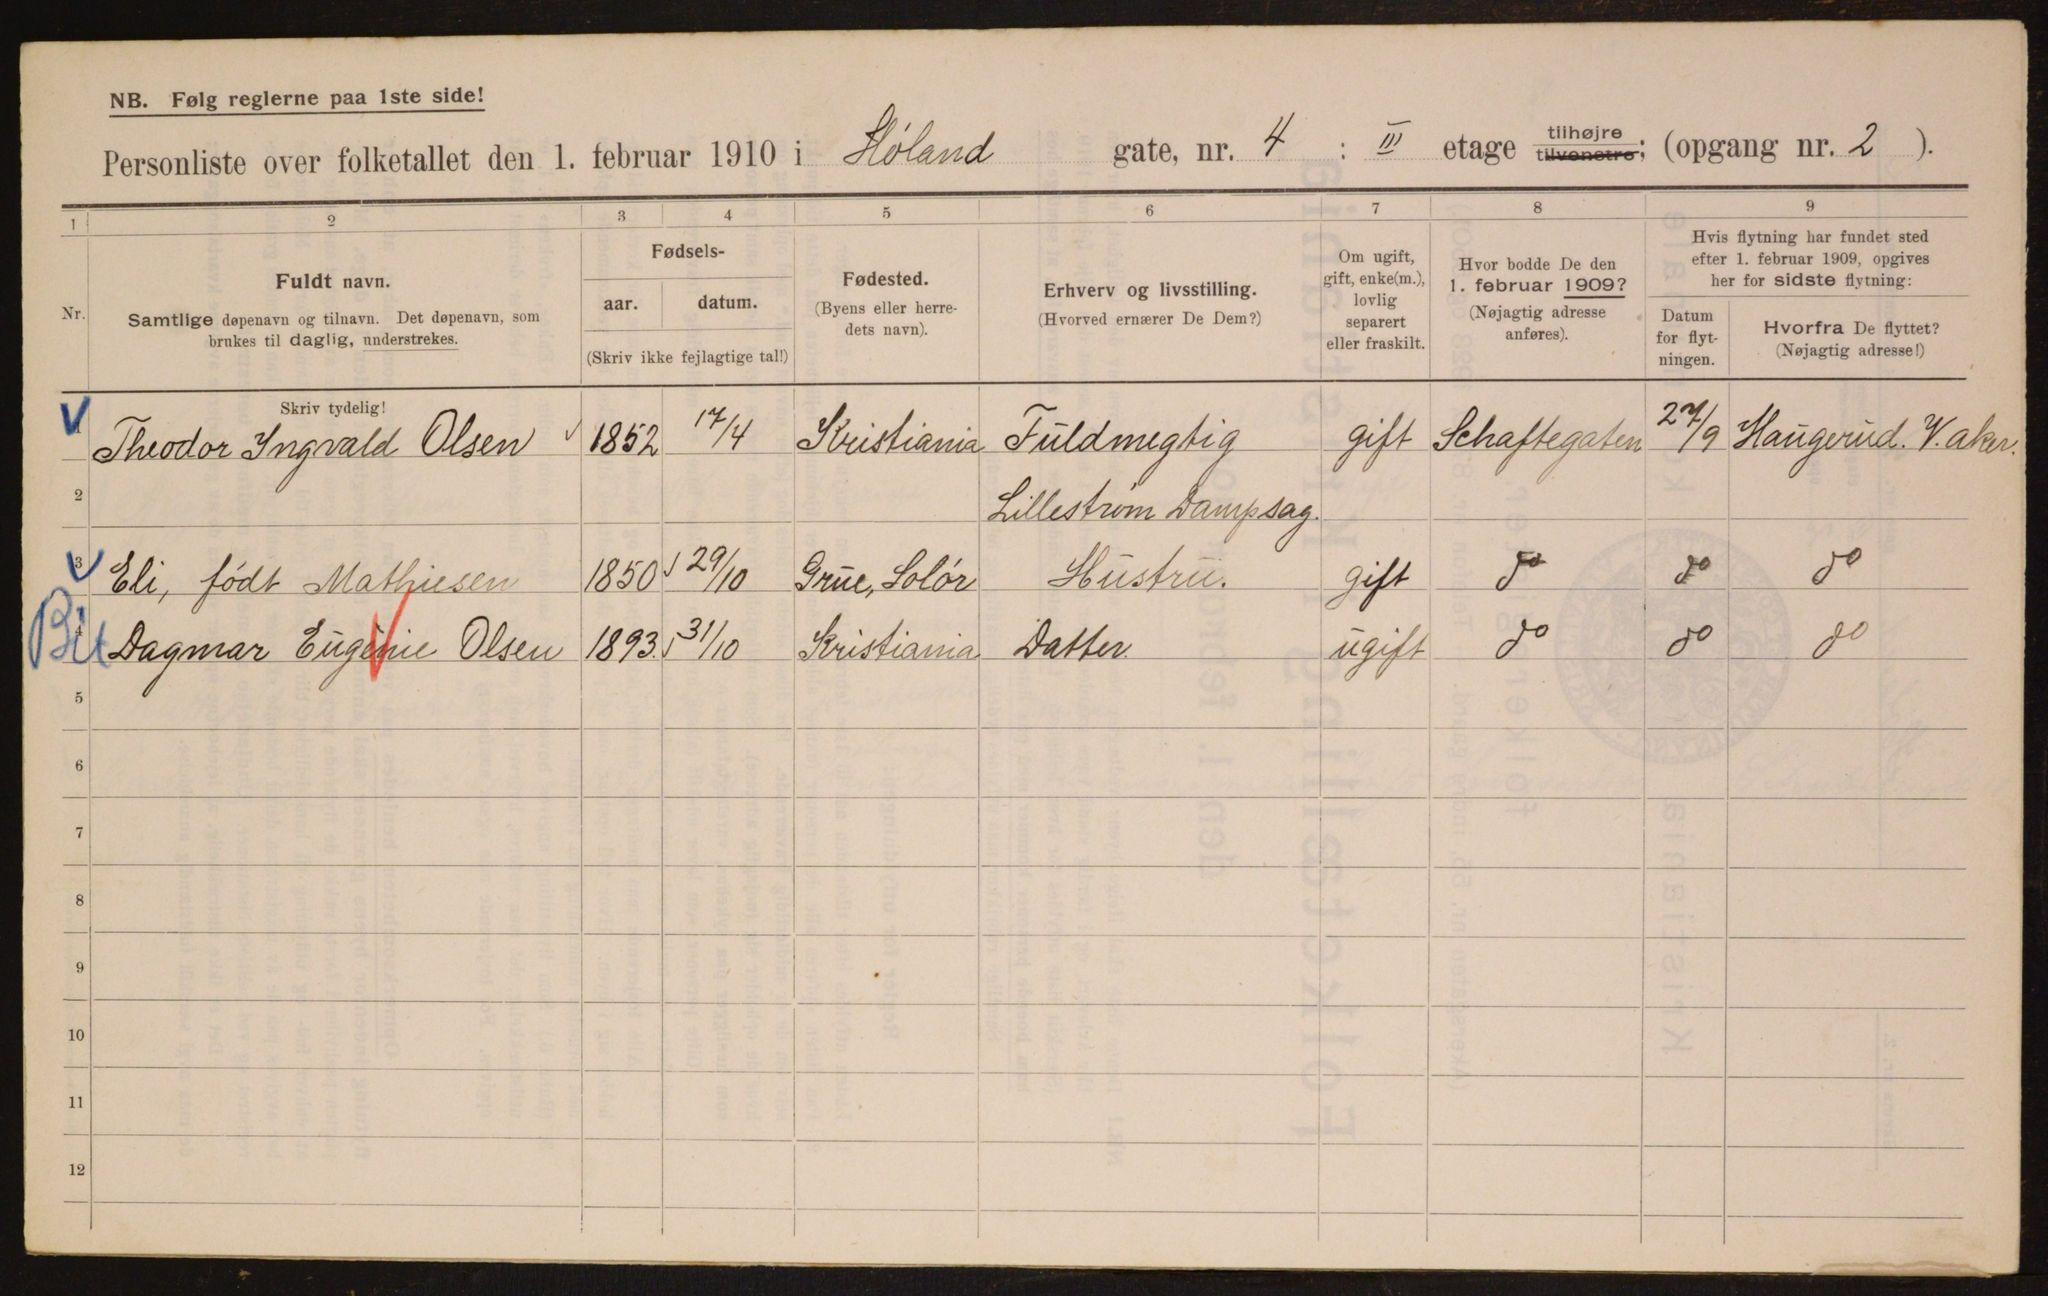 NB. Følg reglerne paa 1ste side!
Personliste over folketallet den 1. februar 1910 i Høland gate, nr. 4 : III etage tilhøjre tilvenstre; (opgang nr. 2 ).
1 2 3 4 5 6 7 8 9
Nr.
Fuldt navn.
Samtlige døpenavn og tilnavn. Det døpenavn, som
brukes til daglig, understrekes.
Fødsels-
aar. datum.
(Skriv ikke fejlagtige tal!)
Fødested.
(Byens eller herre-
dets navn).
Erhverv og livsstilling.
(Hvorved ernærer De Dem?)
Om ugift,
gift, enke(m.),
lovlig
separert
eller fraskilt.
Hvor bodde De den
1. februar 1909?
(Nøjagtig adresse
anføres).
Hvis flytning har fundet sted
efter 1. februar 1909, opgives
her for sidste flytning:
Datum
for flyt-
ningen.
Hvorfra De flyttet?
(Nøjagtig adresse!)
Skriv tydelig!
1 Theodor Ingvald Olsen 1852 17/4 Kristiania Fuldmegtig gift Schaftegaten 27/9 Haugerud. V. aker.
2 Lillestrøm Dampsag.
3 Eli, født Mathiesen 1850 29/10 Grue, Solør Hustru. gift do do do
4 Dagmar Eugenie Olsen 1893. 31/10 Kristiania Datter. ugift do do do
5
6
7
8
9
10
11
12